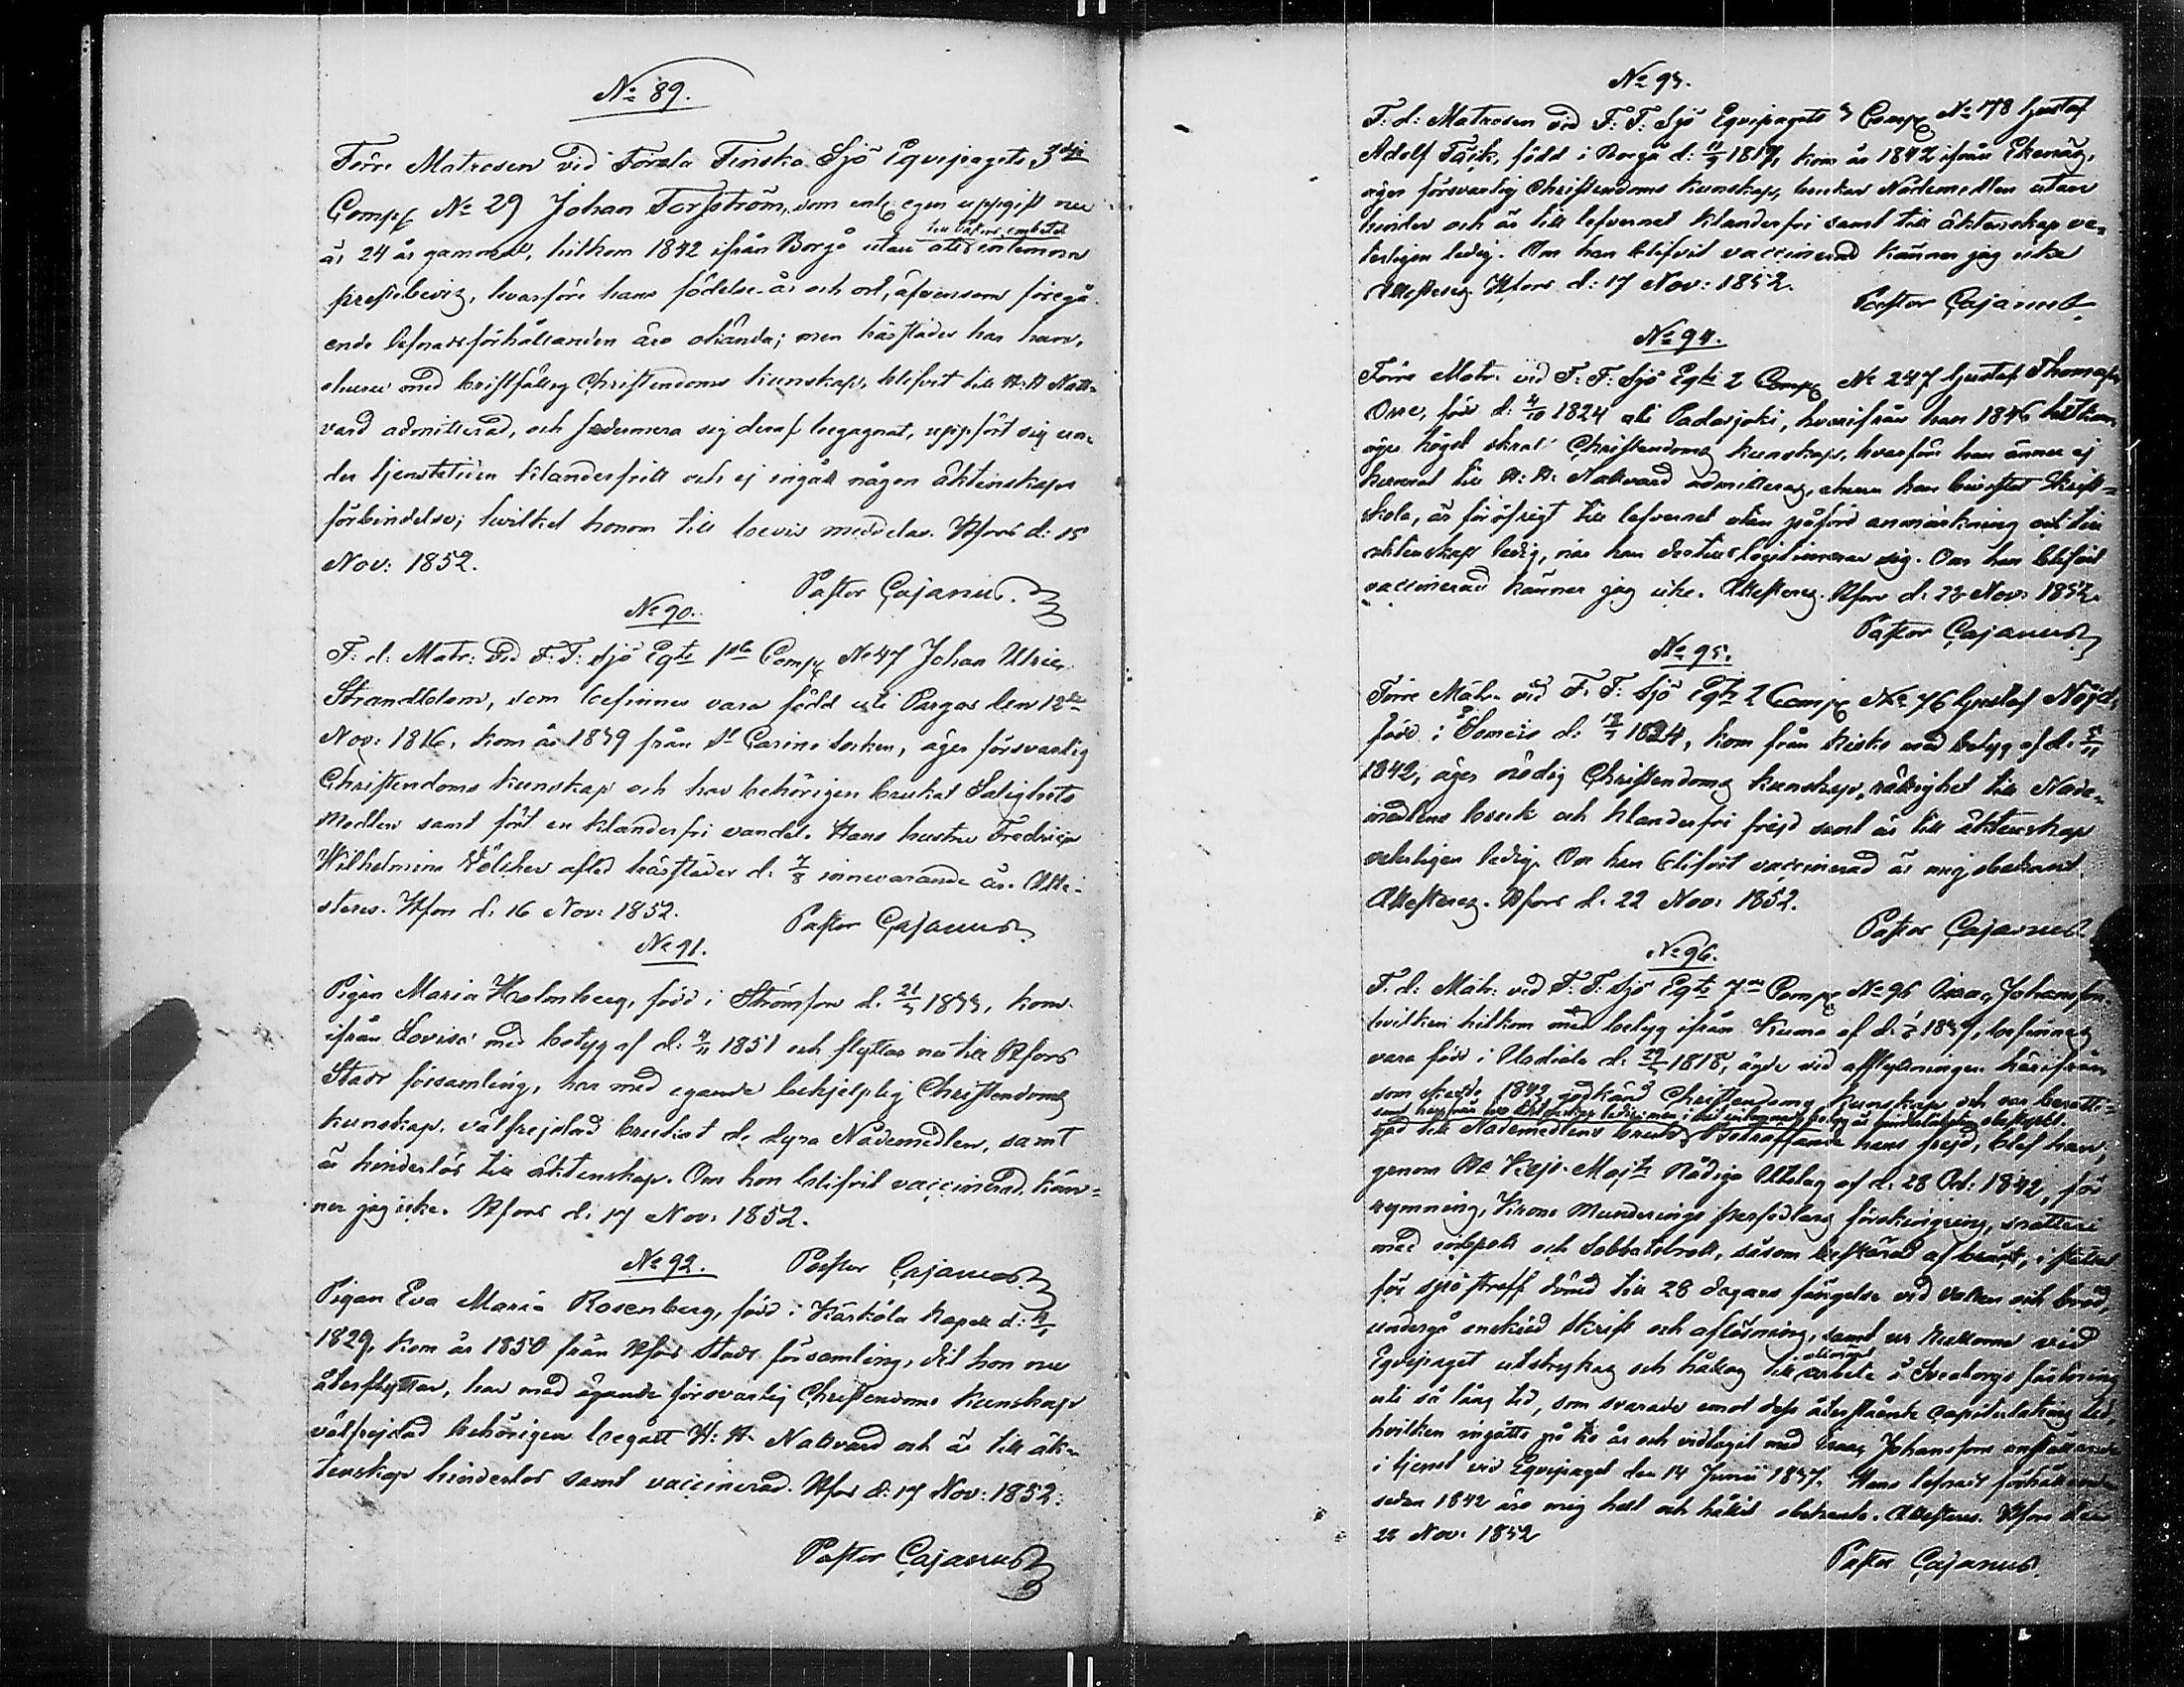 No 89.
Förre Matrosen vid Första Finska Sjö Equipagets 3dje
Comp. No 29 Johan Forsström, som enl. egen uppgift nu
är 24 år gammal, hitkom 1842 ifrån Borgå utan till Pastors embetet
aflemnadt prestbevis, hvarföre hans födelse år och ort, äfvensom föregå-
ende lefnadsförhållanden äro okända; men härstädes har han,
ehuru med bristfällig Christendoms kunskap, blifvit till H. H. Natt-
vard admitterad, och sedermera sig deraf begagnat, uppfört sig un-
der tjenstetiden klanderfritt och ej ingått någon äktenskaps
förbindelse; hvilket honom till bevis meddelas. Hfors d: 15
Nov: 1852.
Pastor Cajanus.
No 90.
F. d: Matr: vid F. F. Sjö Eqts 1sta Comp. No 47 Johan Ulric
Strandblom, som befinnes vara född uti Pargas den 12te
Nov: 1816, kom år 1839 från St Carins socken, äger försvarlig
Christendoms kunskap och har behörigen brukat Salighets
Medlen samt fört en klanderfri vandel. Hans hustru Fredrica
Wilhelmina afled härstädes d. 7/8 innevarande år. Atte-
steras. Hfors d. 16 Nov: 1852.
Pastor Cajanus
No 91.
Pigan Maria Holmberg, född i Strömfors d. 21/3 1833, kom
ifrån Lovisa med betyg af d: 4/11 1851 och flyttar nu till Hfors
Stads församling, har med egande behjelplig Christendoms
kunskap, välfrejdad brukat de dyra Nådemedlen, samt
är hinderlös till äktenskap. Om hon blifvit vaccinerad, kän-
ner jag icke. Hfors d. 17 Nov. 1852.
Pastor Cajanus
No 92.
Pigan Eva Maria Rosenberg, född i Kärkölä Kapell d:
1829, kom år 1850 från Hfors Stads församling, dit hon nu
återflyttar, har med ägande försvarlig Christendoms kunskap
välfrejdad behörigen begått H: H. Nattvard och är till äk-
tenskap hinderlös samt vaccinerad. Hfors d: 17 Nov: 1852.
Pastor Cajanus
No 93.
F: d: Matrosen vid F: F: Sjö Equipagets 3 Comp. No 178 Gustaf
Adolf född i Borgå d: 1817, kom år 1842 ifrån Ekenäs,
äger försvarlig Christendoms kunskap, brukar Nådemedlen utan
hinder och är till lefvernet klanderfri samt till äktenskap ve-
terligen ledig. Om han blifvit vaccinerad känner jag icke
Attesteras. Hfors d: 17 Nov: 1852.
Pastor Cajanus.
No 94.
Förre Matr. vid F. F: Sjö Eqts 2 Comp. No 247 Gustaf Thomasson
född d: 4/10 1824 uti Padasjoki, hvarifrån han 1846 hitkom,
äger högst skral Christendoms kunskap, hvarföre han ännu ej
kunnat till H: H. Nattvard admitteras, ehuru han bevistat Skrift-
skola, är föröfrigt till lefvernet utan påförd anmärkning och till
äktenskap ledig, när han dertill legitimerar sig. Om han blifvit
vaccinerad känner jag icke. Attesteras. Hfors d. 22 Nov. 1852.
Pastor Cajanus
No 95.
Förre Matr. vid F. F: Sjö Eqts 2 Comp. No 76 Gustaf Nöjd,
född i Somero d: 1824, kom från Kisko med betyg af d.
1842; äger nödig Christendoms kunskap, rättighet till Nåde-
medlens bruk och klanderfri frejd samt är till äktenskap
veterligen ledig. Om han blifvit vaccinerad är mig obekant.
Attesteras. Hfors d. 22 Nov: 1852.
Pastor Cajanus.
No 96.
F. d: Matr: vid F. F: Sjö Eqts 7de Comp. No 96 Isaac Johansson
hvilken hitkom med betyg ifrån Kumo af d. 1837, befinnes
vara född i Urdiala d: 29/1 1818, ägde vid afflyttningen härifrån
som skedde 1842 godkänd Christendoms kunskap och var berätti-
gad till Nådemedlens bruk. Beträffande hans frejd, blef han,
genom Hs Kejs. Majts Nådiga Utslag af d. 28 Oct: 1842, för
rymning, Krono Munderings persedlars förskingring, snatteri
med inbrott och Sabbatsbrott, såsom i stället
för spöstraff dömd till 28 dagars fängelse vid vatten och bröd,
undergå enskild Skrift och aflösning, samt ur rullorne vid
Equipaget utstrykas och hållas till allmänt arbete å Sveaborgs fästning
uti så lång tid, som svarade emot dess återstående Capitulations tid,
hvilken ingåtts på tio år och vidtagit med Isaac Johanssons anställande
i tjenst vid Equipaget den 14 Junii 1837. Hans lefnads förhållande
sedan 1842 äro mig helt och hållit obekante. Attesteras. Hfors den
22 Nov. 1852
Pastor Cajanus.